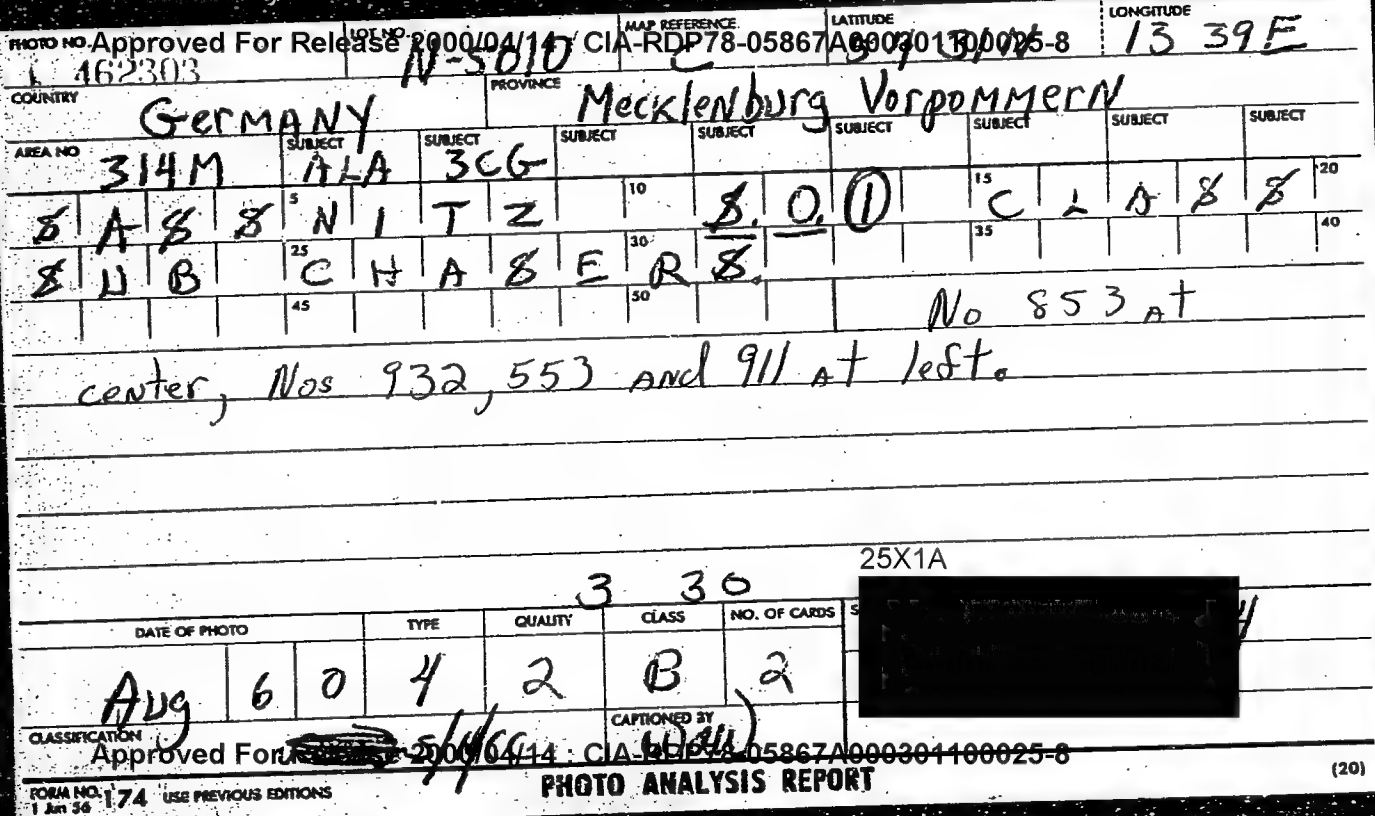 PHOTO NO. Approved For Release 2000/04/14 : CIA-RDP78-05867A000301100025-8
LOT NO. MAP REFERENCE LATITUDE LONGITUDE
462303 N-5010 C 13 39E
COUNTRY Germany PROVINCE Mecklenburg Vorpommern
AREA NO 314M SUBJECT ALA SUBJECT 3CG SUBJECT SUBJECT SUBJECT SUBJECT SUBJECT SUBJECT
SASSNITZ S.O.1 CLASS
5 10 15 20
SUB CHASERS.
25 30 35 40
45 50 No 853 at
center, Nos 932, 553 and 911 at left.
25X1A
3 30
DATE OF PHOTO TYPE QUALITY CLASS NO. OF CARDS S
Aug 6 0 4 2 B 2
CLASSIFICATION CAPTIONED BY
Approved For Release 2000/04/14 : CIA-RDP78-05867A000301100025-8
FORM NO. 174 USE PREVIOUS EDITIONS PHOTO ANALYSIS REPORT (20)
1 Jun 56